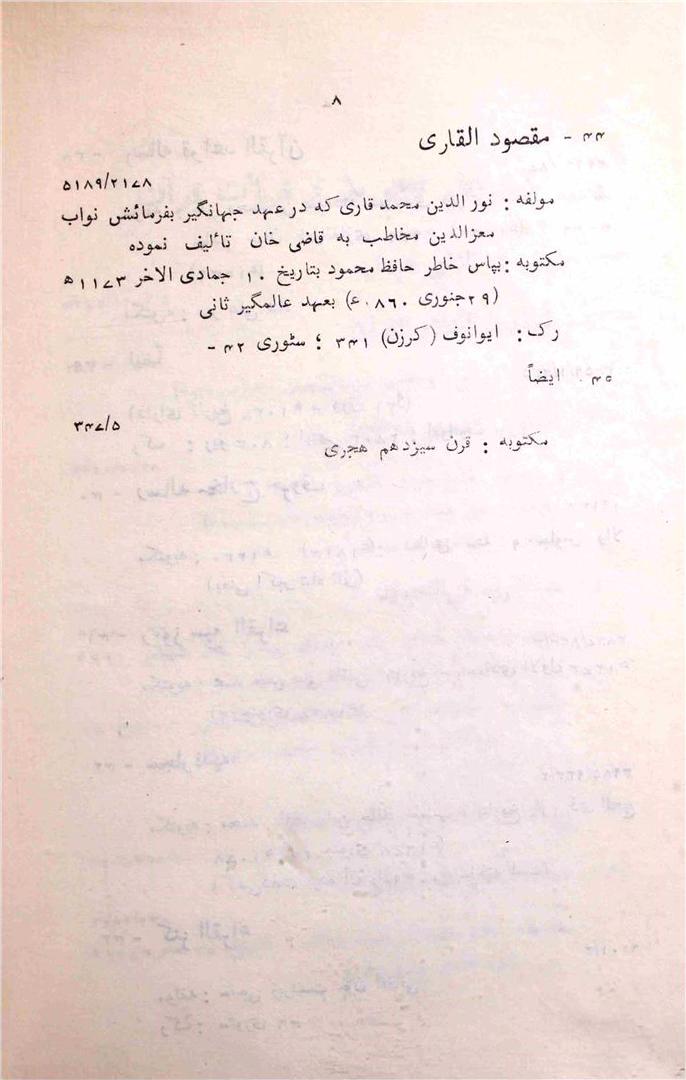 ۸
۴۴ - مقصود القاری
۵۱۸۹/۲۱۷۸
مولفه : نور الدین محمد قاری که در عهد جهانگیر بفرمائش نواب
معزالدین مخاطب به قاضی خان تألیف نموده
مکتوبه : بپاس خاطر حافظ محمود بتاریخ ۱۰ جمادی الاخر ۱۱۷۳ ھ
(۲۹ جنوری ۱۷۶۰ء) بعهد عالمگیر ثانی
رک : ایوانوف (کرزن) ۳۴۱ ؛ سٹوری ۴۲ -
۴۵ . ایضاً
۳۴۷/۵
مکتوبه : قرن سیزدهم هجری